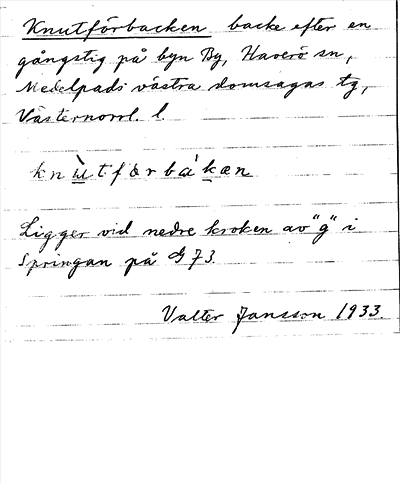 Knutförbacken backe efter en
gångstig på byn By, Haverö sn,
Medelpads västra domsagas tg,
Västernorrl. l.
knùtförbákæn
Ligger vid nedre kroken av "g" i
Springan på G 73.
Valter Jansson 1933.